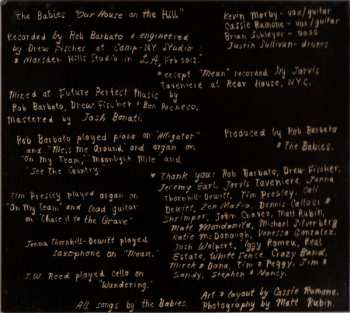 The Babies "Our House on the Hill"
Recorded by Rob Barbato & engineered
by Drew Fischer at Comp-NY Studio
& Marsden Hills Studio in L.A, Feb 2012*
* except "Mean" recorded by Jarvis
Taveniere at Rear House, N.Y.C.
Mixed at Future Perfect Music by
Rob Barbato, Drew Fischer & Ben Pacheco,
Mastered by Josh Bonati.
Rob Barbato played piano on "Alligator"
and "Mess Me Around and organ on
"On My Team," Moonlight Mile and
"See The Country."
Tim Presley played organ on
"On My Team" and lead guitar
on "Chase it to the Grave"
Jenna Thornhill-Dewitt played
saxophone on "Mean."
J.W. Reed played cello on
"Wandering."
All songs by the Babies.
Kevin Morby - vox/guitar
Cassie Ramone - vox/guitar
Brian Schleyer - bass
Justin Sullivan - drums
Produced by Rob Barbato
& The Babies.
* Thank you: Rob Barbato, Drew Fischer,
Jeremy Earl, Jarvis Taveniere, Jenna
Thornhill-Dewitt, Tim Presley, Cali
Dewitt, Dennis Callaci &
Shrimper, John Chavez, Matt Rubin,
Matt Michael Silverberg
Katie McDonough, Vanessa Gonzalez,
Josh Welpert, Iggy Romeu, Real
Estate, White Fence, Crazy Band,
Mirek & Dana, Tim & Peggy, Jim &
Sandy, Stephen & Nancy.
Art & layout by Cassie Ramone.
Photography by Matt Rubin.